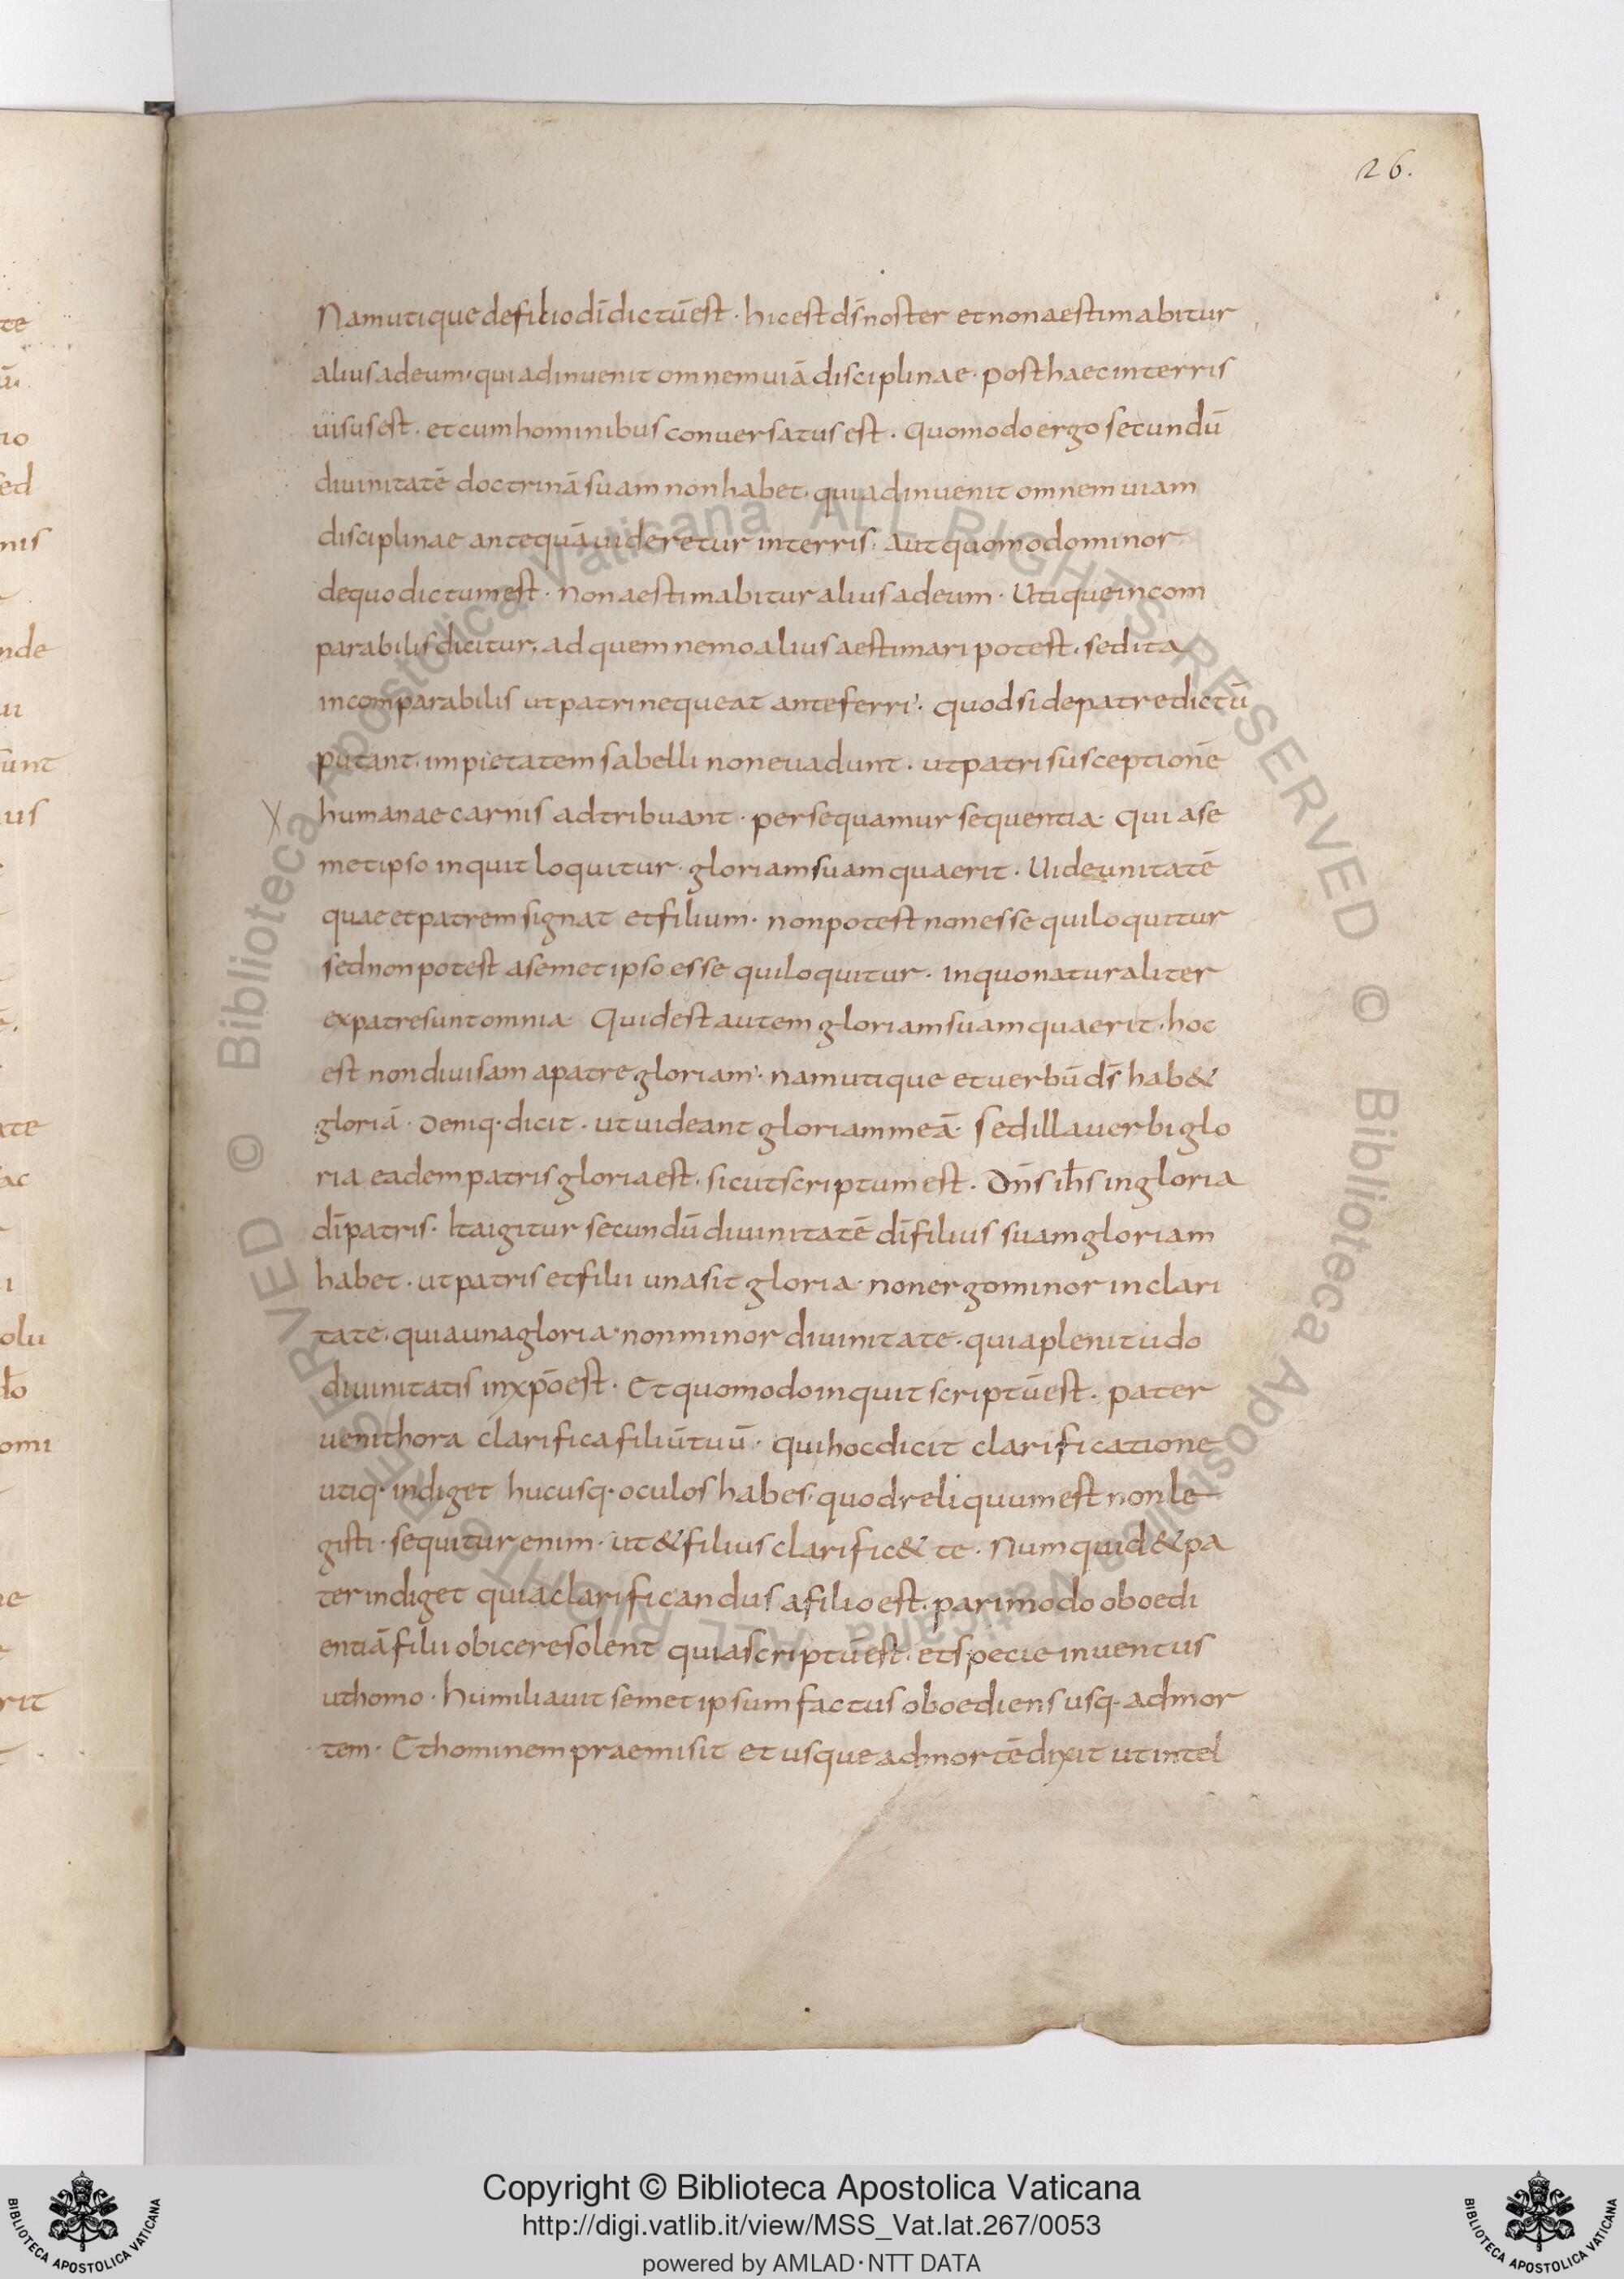 26.
Nam utique de filio dī dictū est · hic est ds̄ noster et non aestimabitur
alius ad eum · qui adinuenit omnem uiā disciplinae · post haec in terris
uisus est · et cum hominibus conuersatus est · Quomodo ergo secundū
diuinitatē doctrinā suam non habet · qui adinuenit omnem uiam
disciplinae antequā uideretur in terris · Aut quomodo minor
de quo dictum est · Non aestimabitur alius ad eum · Utique incom
parabilis dicitur, ad quem nemo alius aestimari potest · sed ita
incomparabilis ut patri nequeat anteferri · Quod si de patre dictū
putant · impietatem sabelli non euadunt · ut patri susceptionē
humanae carnis adtribuant · persequamur sequentia · Qui a se
metipso inquit loquitur · gloriam suam quaerit · Uide unitatē
quae et patrem signat et filium · non potest non esse qui loquitur
sed non potest a semetipso esse qui loquitur · In quo naturaliter
ex patre sunt omnia Quid est autem gloriam suam quaerit · hoc
est non diuisam a patre gloriam · Nam utique et uerbū ds̄ hab&
gloriā · Deniq· dicit · ut uideant gloriam meā · Sed illa uerbi glo
ria eadem patris gloria est · sicut scriptum est · Dn̄s ih̄s in gloria
dī patris · Ita igitur secundū diuinitatē dī filius suam gloriam
habet · ut patris et filii una sit gloria · non ergo minor in clari
tate · quia una gloria · non minor diuinitate · quia plenitudo
diuinitatis in xp̄o est · Et quomodo inquit scriptū est · Pater
uenit hora clarifica filiū tuū · qui hoc dicit clarificatione
utiq· indiget hucusq· oculos habes · quod reliquum est non le
gisti · sequitur enim · ut & filius clarific& te · Numquid & pa
ter indiget quia clarificandus a filio est · pari modo oboedi
entiā filii obicere solent quia scriptū est · et specie inuentus
ut homo · humiliauit semet ipsum factus oboediens usq· ad mor
tem · Et hominem praemisit et usque ad mortē dixit ut intel
te
ū
tio
sed
nis
nde
ui
sunt
us
ate
ac
olu
omi
rit
© Biblioteca Apostolica Vaticana ALL RIGHTS RESERVED © Biblioteca Apostolica Vaticana ALL RIGHTS RESERVED
BIBLIOTECA APOSTOLICA VATICANA
Copyright © Biblioteca Apostolica Vaticana
http://digi.vatlib.it/view/MSS_Vat.lat.267/0053
powered by AMLAD · NTT DATA
BIBLIOTECA APOSTOLICA VATICANA